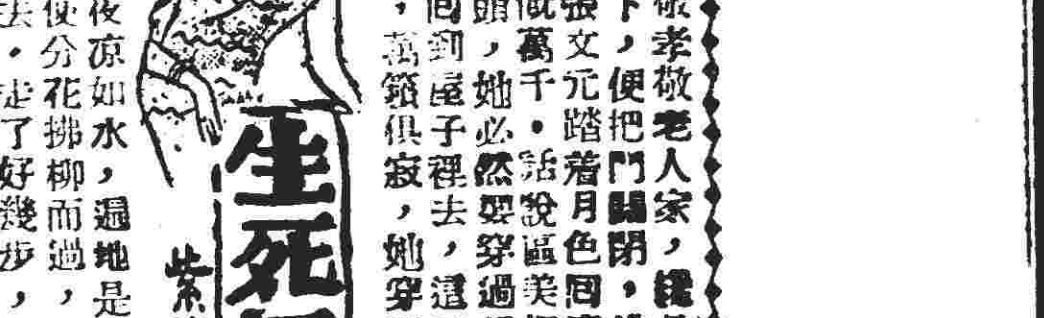 敬孝敬老人家，
下，便把門關閉，
張文元踏着月色回
慨萬千。話說區美
頭，她必然要穿過
回到屋子裡去，這
，萬籟俱寂，她穿
生死
紫
夜凉如水，遍地是
便分花拂柳而過，
去。走了好幾步，